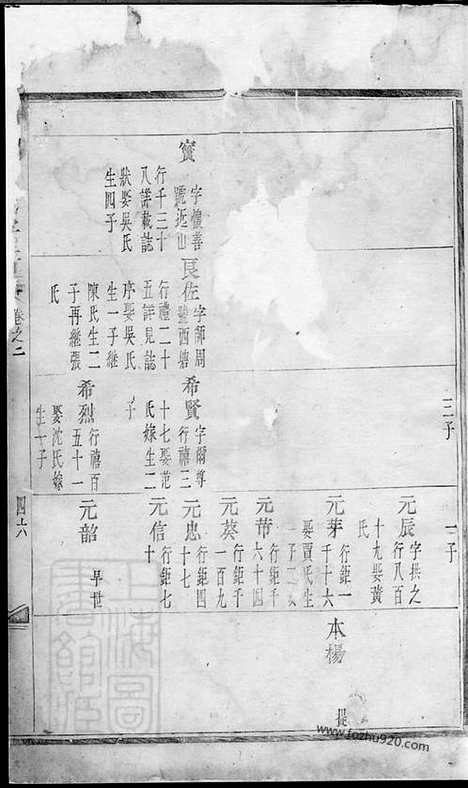 三子
一子
元辰 字拱之
行八百
十九娶黃
氏
元芽 行鉅一
千十六
娶賈氏生
一子
元芾 行鉅千
六十四
元葵 行鉅千
一百九
元忠 行鉅四
十七
元信 行鉅七
十
元韶 早世
本楊
寅 字懷善
號近山
行千三十
八詳載誌
狀娶吳氏
生四子
良佐 字師周
號西塘
行禮二十
五詳見誌
序娶吳氏
生一子繼
陳氏生二
子再繼張
氏
希賢 字爾尊
行禧三
十七娶范
氏嫁生二
子
希烈 行禧百
五十一
娶沈氏嫁
生一子
卷之二
四十六
上海圖書館藏
www.fozhu920.com